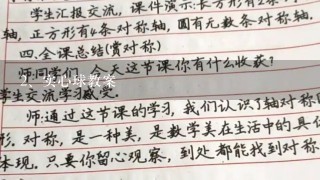 学生汇报交流，课件演示：长方形有2条
轴，正方形有4条对称轴，圆有无数条对称轴。
四.全课总结(赏对称)
师:同学们，今天这节课你有什么收获？
二、实心球教案
学生交流学习
师:通过这节课的学习，我们认识了轴对称图
形.对称，是一种美，是数学美在生活中的具体
体现.只要你留心观察，到处都能找到对称